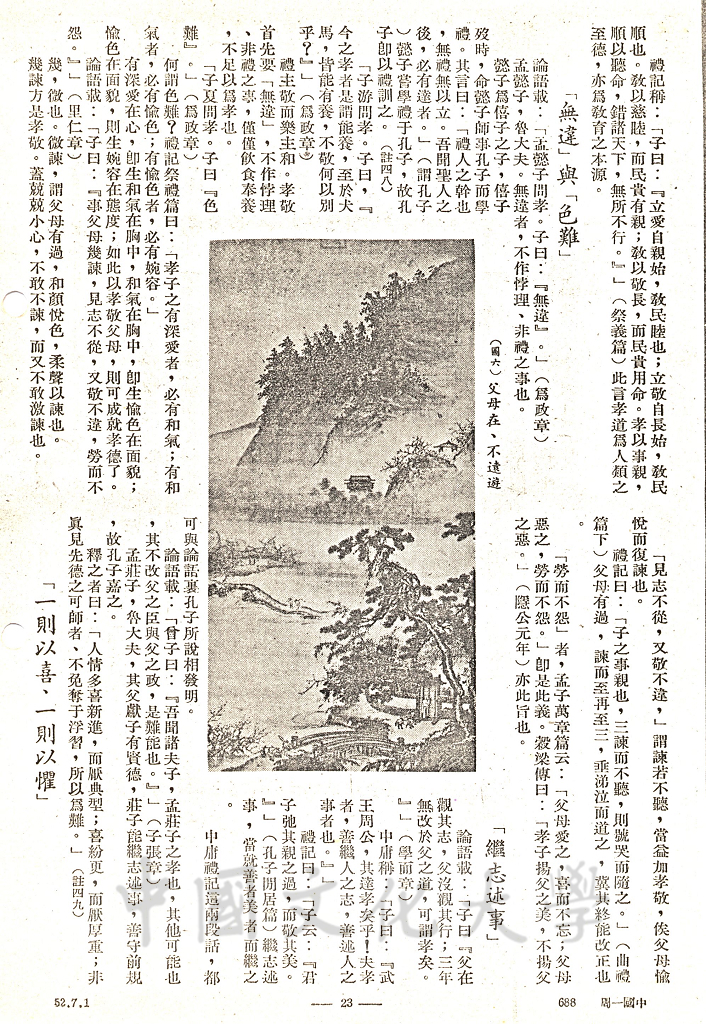 禮記稱：「子曰：『立愛自親始，敎民睦也；立敬自長始，敎民
順也。敎以慈睦，而民貴有親；敎以敬長，而民貴用命。孝以事親，
順以聽命，錯諸天下，無所不行。』」（祭義篇）此言孝道爲人類之
至德，亦爲敎育之本源。
「無違」與「色難」
論語載：「孟懿子問孝。子曰：『無違』。」（爲政章）
孟懿子，魯大夫。無違者，不作悖理、非禮之事也。
懿子爲僖子之子，僖子
歿時，命懿子師事孔子而學
禮。其言曰：「禮人之幹也
，無禮無以立。吾聞聖人之
後，必有達者。」（謂孔子
）懿子嘗學禮于孔子，故孔
子卽以禮訓之。（註四八）
「子游問孝。子曰，『
今之孝者是謂能養，至於犬
馬，皆能有養，不敬何以別
乎？』」（爲政章）
禮主敬而樂主和。孝敬
首先要「無違」，不作悖理
、非禮之事，僅僅飮食奉養
，不足以爲孝也。
「子夏問孝。子曰『色
難』。」（爲政章）
何謂色難？禮記祭禮篇曰：「孝子之有深愛者，必有和氣；有和
氣者，必有愉色；有愉色者，必有婉容。」
有深愛在心，卽生和氣在胸中，和氣在胸中，卽生愉色在面貌；
愉色在面貌，則生婉容在態度；如此以孝敬父母，則可成就孝德了。
論語載：「子曰：『事父母幾諫，見志不從，又敬不違，勞而不
怨。』」（里仁章）
幾，微也。微諫，謂父母有過，和顏悅色，柔聲以諫也。
幾諫方是孝敬。蓋兢兢小心，不敢不諫，而又不敢激諫也。
（圖六）父母在、不遠遊
「見志不從，又敬不違，」謂諫若不聽，當益加孝敬，俟父母愉
悅而復諫也。
禮記曰：「子之事親也，三諫而不聽，則號哭而隨之。」（曲禮
篇下）父母有過，諫而至再至三，垂涕泣而道之，冀其終能改正也
「勞而不怨」者，孟子萬章篇云：「父母愛之，喜而不忘；父母
惡之，勞而不怨。」卽是此義。穀梁傳曰：「孝子揚父之美，不揚父
之惡。」（隱公元年）亦此旨也。
「繼志述事」
論語載：「子曰『父在
觀其志，父沒觀其行；三年
無改於父之道，可謂孝矣。
』」（學而章）
中庸稱：「子曰：『武
王周公，其達孝矣乎！夫孝
者，善繼人之志，善述人之
事者也。』」
禮記曰：「子云：『君
子弛其親之過，而敬其美。
』」（孔子閒居篇）繼志述
事，當就善者美者而繼之
。
中庸禮記這兩段話，都
可與論語裏孔子所說相發明。
論語載：「曾子曰：『吾聞諸夫子，孟莊子之孝也，其他可能也
，其不改父之臣與父之政，是難能也。』」（子張章）
孟莊子，魯大夫，其父獻子有賢德，莊子能繼志述事，善守前規
，故孔子嘉之。
釋之者曰：「人情多喜新進，而厭典型；喜紛更，而厭厚重；非
眞見先德之可師者、不免奪于浮習，所以爲難。」（註四九）
「一則以喜、一則以懼」
中國文化大學
52.7.1
— 23 —
688
周一國中